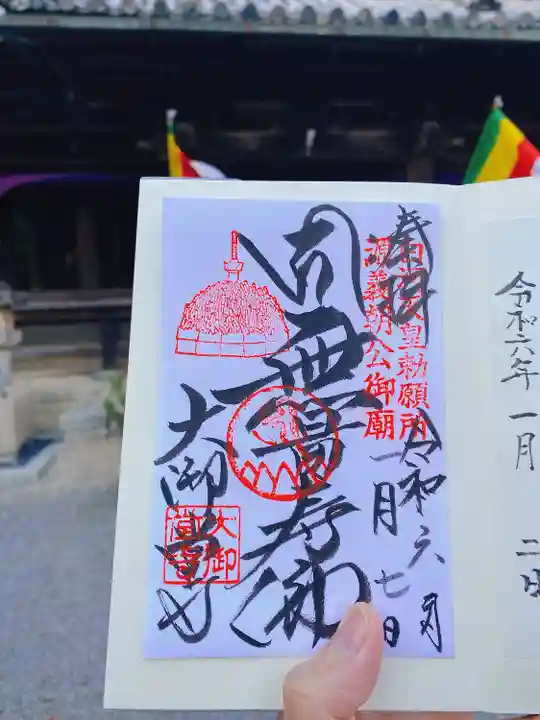 令和六年 一月 二日
奉拝
皇勅願所
源義朝公御廟
令和六年
一月七日
無量寿佛
大御堂寺
大御